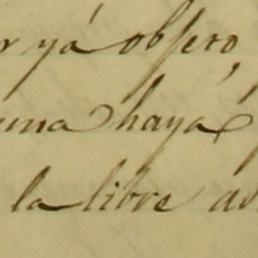 r yá obsero,
una haya
la libre ad